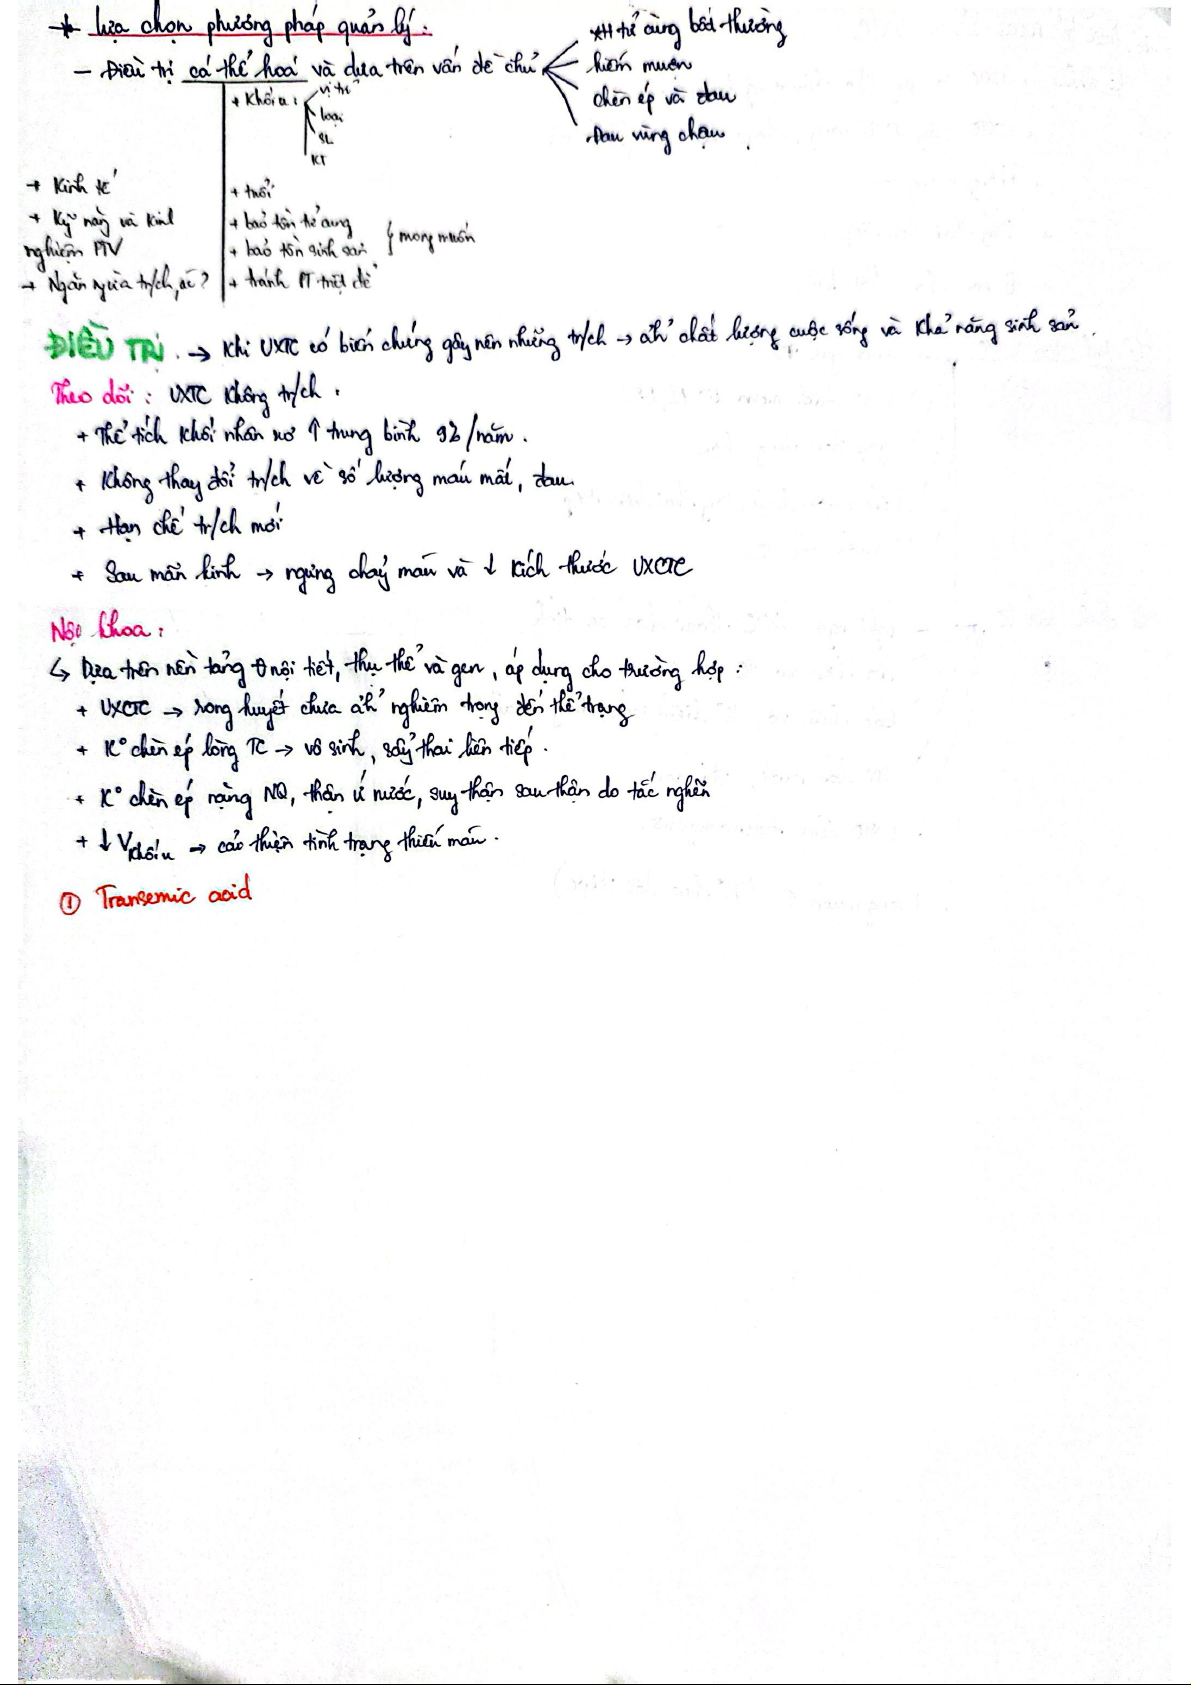 * Lựa chọn phương pháp quản lý:
- Điều trị cá thể hoá và dựa trên vấn đề chủ
XH tử cung bất thường
hiếm muộn
chèn ép và đau
Đau vùng chậu
+ Khối u:
vị trí
loại
SL
KT
+ Kinh tế
+ Kỹ năng và kinh
nghiệm PTV
+ Ngăn ngừa tr/ch, ác?
+ tuổi
+ bảo tồn tử cung
+ bảo tồn sinh sản
} mong muốn
+ tránh PT triệt để
ĐIỀU TRỊ. → Khi UXTC có biến chứng gây nên những tr/ch → ảh' chất lượng cuộc sống và khả năng sinh sản.
Theo dõi: UXTC không tr/ch.
+ Thể tích khối nhân xơ ↑ trung bình 9%/năm.
+ Không thay đổi tr/ch về số lượng máu mất, đau.
+ Hạn chế tr/ch mới
+ Sau mãn kinh → ngưng chảy máu và ↓ kích thước UXCTC
Nội khoa:
↳ Dựa trên nền tảng θ nội tiết, thụ thể và gen, áp dụng cho trường hợp:
+ UXCTC → rong huyết chưa ảh' nghiêm trọng đến thể trạng
+ K° chèn ép lòng TC → vô sinh, sẩy thai liên tiếp.
+ K° chèn ép NQ, thận ứ nước, suy thận sau thận do tắc nghẽn
+ ↓ Vkhối u → cải thiện tình trạng thiếu máu.
① Transemic acid